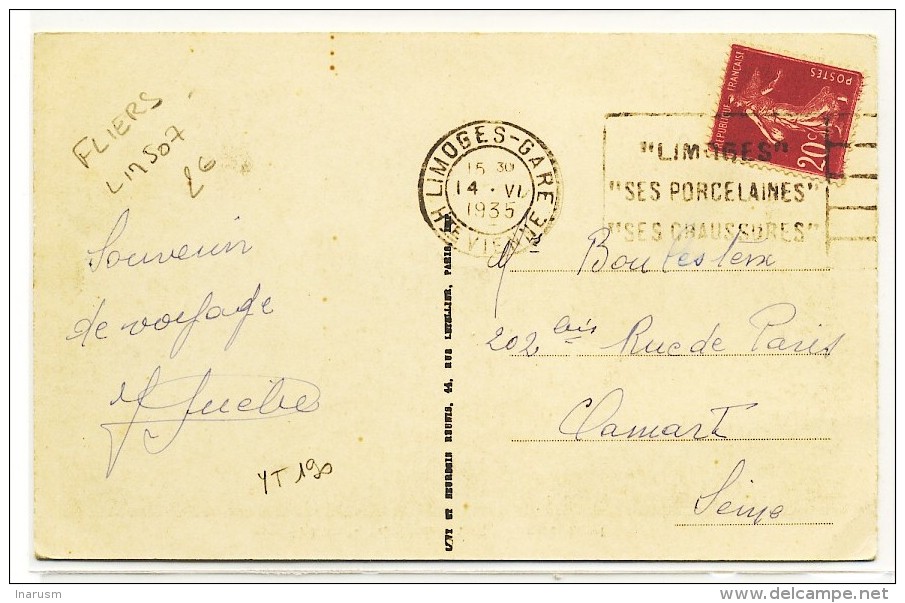 FLIERS
LIM507
26
Souvenir
de voyage
LIMOGES-GARE
15 30
14 · VI
1935
HTE VIENNE
"LIMOGES"
"SES PORCELAINES"
"SES CHAUSSURES"
REPUBLIQUE FRANÇAISE
POSTES
20c
202 bis Rue de Paris
Clamart
Seine
YT 190
LEVY ET NEURDEIN REUNIS, 44, RUE LETELLIER, PARIS
Inarusm
delcampe.net